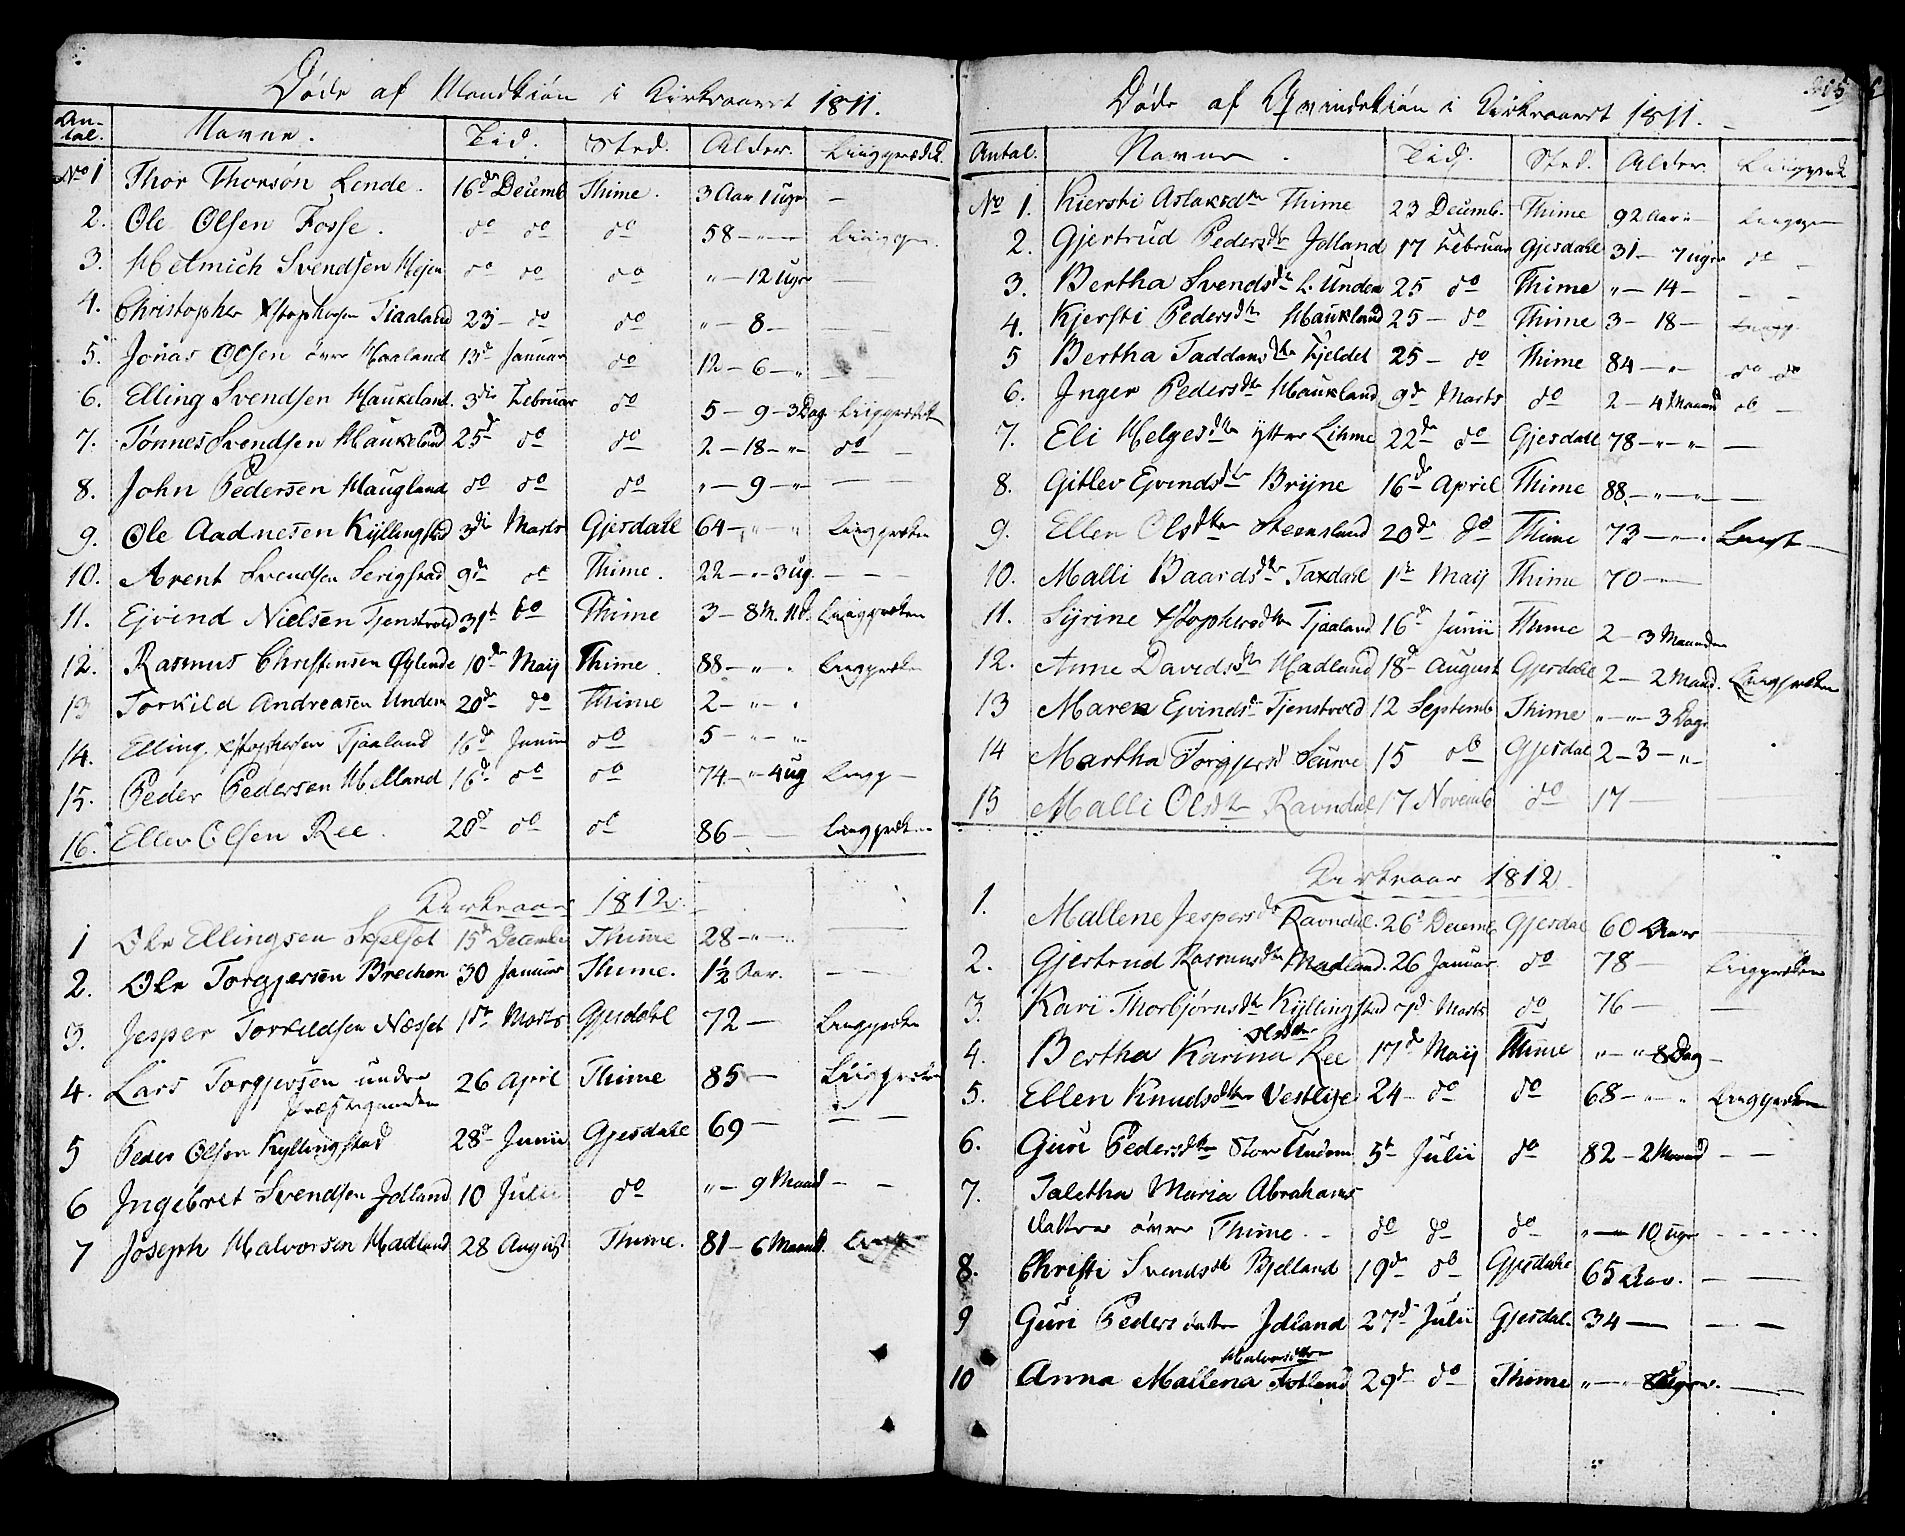 Døde af Mandkiøn i Kirkeaaret 1811.
An-
tal. Navne. Tid. Sted. Alder. Liigprædik.
No 1 Thor Thorsøn Lende. 16de Decemb Thime. 3 Aar 1 ugr —
2. Ole Olsen Fosse. do do do 58 — Liigpr.
3. Helmich Svendsen Højen do do do „ — 12 Ugr —
4. Christopher Xstophersen Tiaaland 23 — do do „ — 8 — —
5. Jonas Olsen övre Haaland 13de Januar do 12 — 6 — „ —
6. Elling Svendsen Haukeland. 3die Februar do 5 — 9 — 3 Dag Liigprædik
7. Tønnes Svendsen Haukeland 25d do do 2 — 18 — „ do —
8. John Pedersen Haugland do do do „ — 9 — „ — —
9. Ole Aadnesen Kyllingstad 3die Marts Gjesdahl 64 — „ „ Liigpræken
10. Arent Svendsen Serigstad 9de do Thime. 22 — „ 3 ug. — —
11. Ejvind Nielsen Tjenstvold 31t do Thime 3 — 8 M. 11 d. Liigpræken
12. Rasmus Christensen Øylende 10de Maij Thime. 88 — „ . Liigpræken
13 Torkild Andreasen Undem 20de do Thime 2 — „ „
14. Elling Xstophersen Tjaaland 16de Junii do 5 — „ „
15. Peder Pedersen Helland 16d. do do 74 — „ 4 ug Liigp —
16. Eller Olsen Ree. 20de do do 86 — Liigpræken
Kirkeaar 1812.
1 Ole Ellingsen Skjelset 15d Decembr Thime 28 — „ —
2. Ole Torgjersen Brechen 30 Januar Thime. 1½ Aar. — —
3. Jesper Torkildsen Næsset 1ste Marts Gjesdahl 72 — Liigpræken
4. Lars Torgjersen under 26 April Thime 85 — Liigpræken
Præstegaarden
5 Peder Olsen Kyllingstad 28de Junii Gjesdahl 69 — — —
6 Ingebret Svendsen Jdland 10 Julii do „ — 9 Maand — —
7 Joseph Halvorsen Hadland 28 August Thime. 81 — 6 Maand.
Døde af Qvindekiøn i Kirkeaaret 1811.
Antal. Navne. Tid. Sted. Alder. Liigpræd
No 1. Kiersti Aslaksdtr Thime 23 Decemb. Thime 92 Aar Liigpr
2. Gjertrud Pedersdtr Jdland 17 Februar Gjesdahl 31 — 7 ugr do —
3. Bertha Svendsdtr L. Undem 25 do Thime „ — 14 — — —
4. Kjersti Pedersdtr Haukland 25 — do Thime 3 — 18 —
5 Bertha Taddensdtr Fjeldet 25 — do Thime 84 — „ — do do
6. Inger Pedersdtr Haukland 9d Marts do 2 — 4 Maaned do —
7. Eli Helgesdtr ytter Lihme 22de do Gjesdahl 78 — „ — „ —
8. Gitlev Ejvindsdtr Brijne 16de April Thime 88 — „ — „ —
9. Ellen Olsdtr Steensland 20de do Thime 73 — „ — „
10. Malli Baardsdtr Taxdahl 1ste Maij Thime 70 — „ —
11. Syrine Xstophersdtr Tjaaland 16d Junii Thime 2 — 3 Maaneder
12. Anne Davidsdtr Madland 18d August Gjesdahl 2 — 2 Maand. Liigpræken
13 Maren Ejvindsd Tjenstvold 12 Septemb Thime „ — „ — 3 Dage
14 Martha Torgjersd Seume 15 do Gjesdal 2 — 3 — „ —
15 Malli Olsdtr Ravndal 17 Novemb do 17 —
Kirkeaar 1812.
1. Mallene Jespersdtr Ravndal. 26d Decemb Gjesdal 60 Aar —
2. Gjertrud Rasmusdtr Madland. 26 Januar. do 78 — Liigpræken
3. Kari Thorbjørnsdtr Kyllingstad 7d Marts do 76 — —
Olsdtr
4. Bertha Karina Ree 17d Maij Thime „ — „ 8 Dag —
5. Ellen Knudsdtr Vestlije 24 — do do 68 — „ „ Liigpræken
6. Guri Pedersdtr Store Undem 5t Julii do 82 — 2 Maand — —
7. Taletha Maria Abrahams
datter övre Thime. — do do do „ — 10 ugr —
8. Christi Svendsdtr Bjelland 19de do Gjesdahl 65 Aar. — —
9 Guri Peders datter Jdland 27d Julii Gjesdal 34 — — —
Halvorsdtter
10 Anna Mallena Fotland 29d do Thime „ — „ 8 —